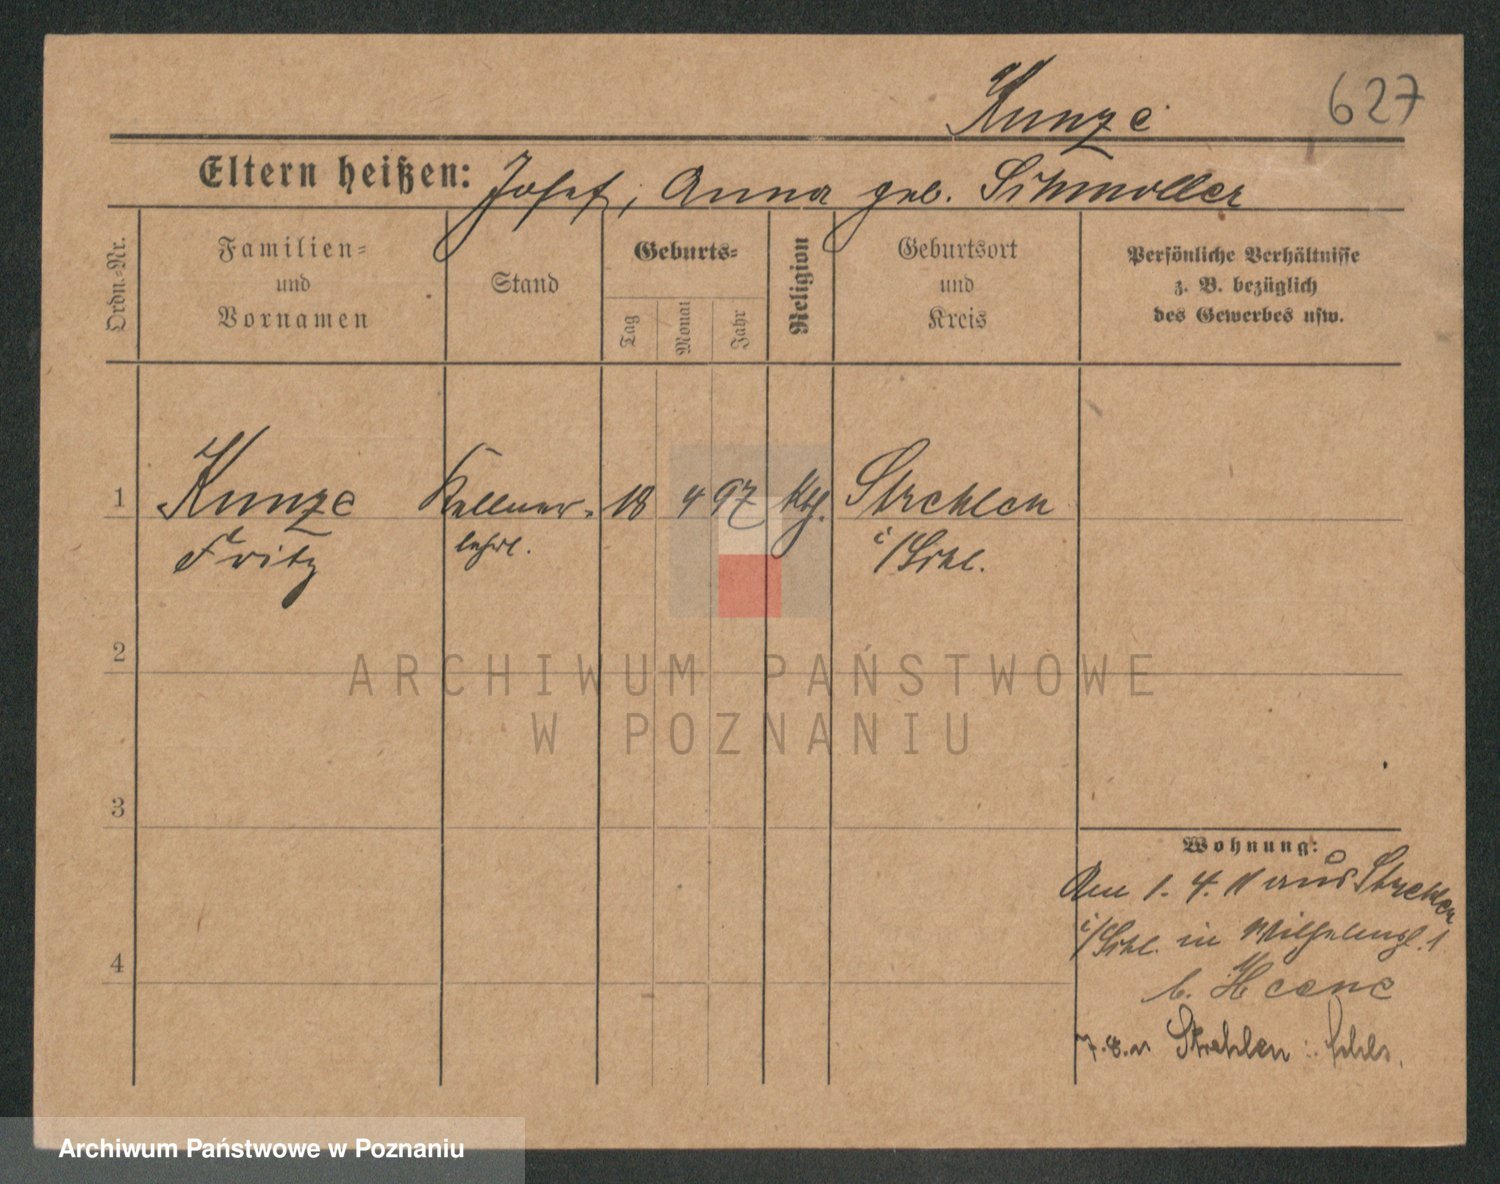 Kunze 627
Eltern heißen: Josef, Anna geb. Schmoller
Ordn.-Nr.
Familien-
und
Vornamen
Stand
Geburts-
Tag
Monat
Jahr
Religion
Geburtsort
und
Kreis
Persönliche Verhältnisse
z. B. bezüglich
des Gewerbes usw.
1 Kunze Kellner- 18 4 97 kth. Strehlen
Fritz lehrl. i/Schl.
2
ARCHIWUM PAŃSTWOWE
W POZNANIU
3
Wohnung:
Am 1. 4. 11 aus Strehlen
i/Schl. in Wilhelmspl. 1
b.
7.8.11 Strehlen i. Schles.
4
Archiwum Państwowe w Poznaniu